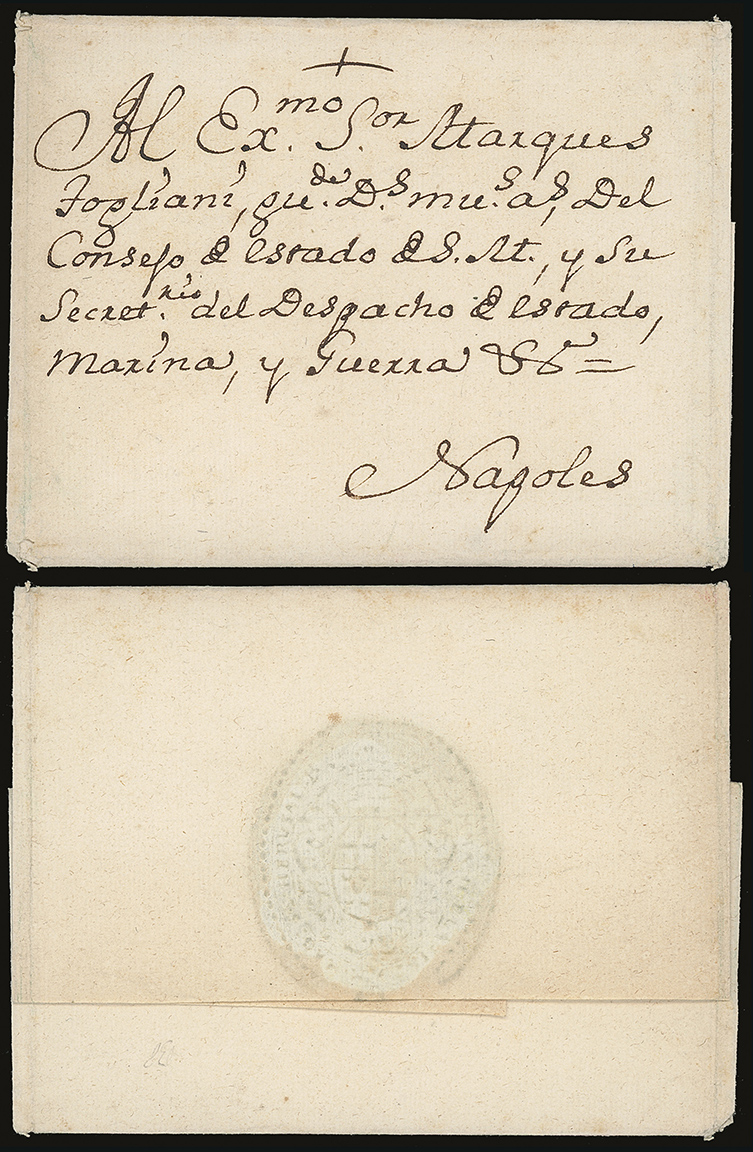 +
Al Ex.mo S.or Marques
Fogliani, gu.de D.s mu.s a.s, Del
Consejo de estado de S. M., y Su
Secret.rio del Despacho de estado,
Marina, y Guerra &c.a =
Napoles